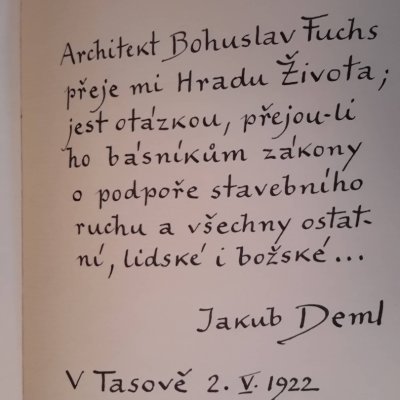 Architekt Bohuslav Fuchs
přeje mi Hradu Života;
jest otázkou, přejou-li
ho básníkům zákony
o podpoře stavebního
ruchu a všechny ostat-
ní, lidské i božské...
Jakub Deml
V Tasově 2. V. 1922